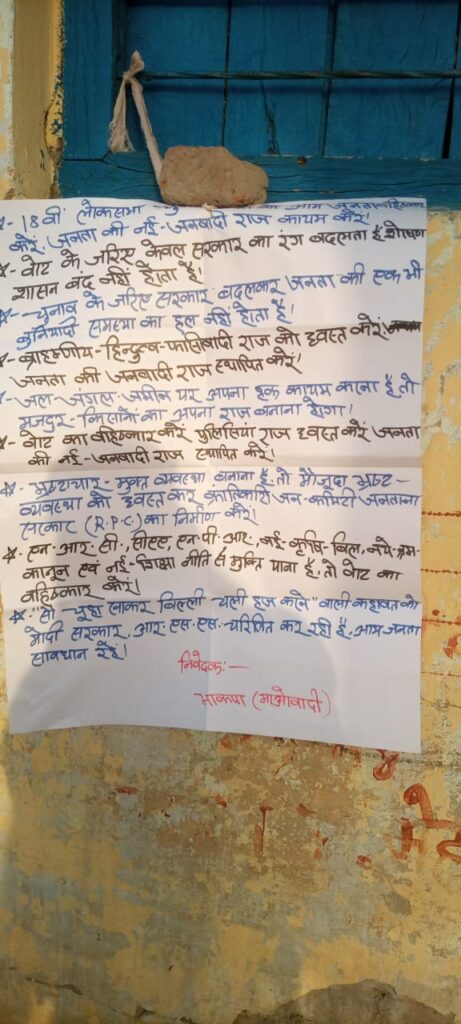 ☆- 18वीं लोकसभा का आम जनता बहिष्कार
करें, जनता की नई-जनवादी राज कायम करें!
☆- वोट के जरिए केवल सरकार का रंग बदलता है, शोषण
शासन बंद नहीं होता है!
☆-- चुनाव के जरिए सरकार बदलकर जनता की एक भी
बुनियादी समस्या का हल नहीं होता है!
☆- ब्राहम्णीय-हिन्दुत्व-फासिवादी राज को ध्वस्त करें
जनता की जनवादी राज स्थापित करें!
☆- जल-जंगल-जमीन पर अपना हक कायम करना है, तो
मजदुर-किसानों का अपना राज बनाना होगा!
☆- वोट का बहिष्कार करें, पुलिसिया राज ध्वस्त करें, जनता
की नई-जनवादी राज स्थापित करें!
☆. भ्रष्टाचार-मुक्त व्यवस्था बनाना है, तो मौजूदा भ्रष्ट-
व्यवस्था को ध्वस्त कर, क्रांतिकारी जन-कमिटी जनताना
सरकार (R.P.C.) का निर्माण करें!
☆. एन.आर.सी., सीएए, एन.पी.आर., नई-कृषि-बिल, नये-श्रम-
कानून एवं नई-शिक्षा नीति से मुक्ति पाना है, तो वोट का
बहिष्कार करें!
☆. "सौ-चूहा खाकर बिल्ली-चली हज करने" वाली कहावत को
मोदी सरकार, आर.एस.एस.-चरितार्थ कर रही है, आम जनता
सावधान रहें!
निवेदक:—
भाकपा (माओवादी)